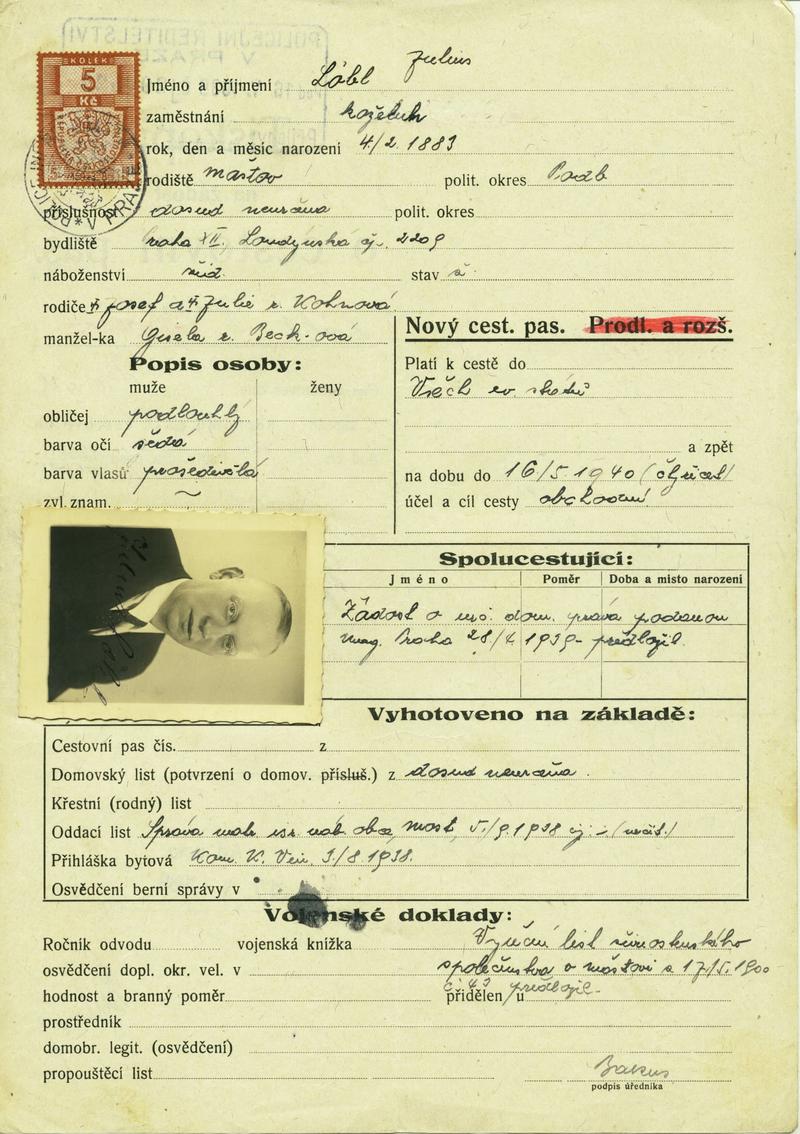 KOLEK
5
Kč
Jméno a příjmení Löbl Julius
zaměstnání koželuh
rok, den a měsíc narození 4/2. 1883
rodiště Maštov polit. okres Podb
příslušnost dosud neurčena polit. okres
bydliště Praha XII, Londýnská čj. 2209
náboženství žid. stav ž.
rodiče Josef a Julie r. Kohnová
manžel-ka Gisela r. Beck-ová
Nový cest. pas. Prodl. a rozš.
Popis osoby:
muže ženy
Platí k cestě do
Všech ev států
obličej podlouhlý
barva očí šedá
a zpět
barva vlasů prošedivělá
na dobu do 16/5 1940
zvl. znam. ~
účel a cíl cesty obchodní
Spolucestující:
Jméno Poměr Doba a místo narození
Žádost o dom. práva podanou
mag. Praha 28/4 1939 - předložil.
Vyhotoveno na základě:
Cestovní pas čís. z
Domovský list (potvrzení o domov. přísluš.) z dosud neurčena.
Křestní (rodný) list
Oddací list Správa matr isr. náb. obce, Most, 5./9. 1938 čj. -
Přihláška bytová Kom. K. Vin. 3/8. 1938.
Osvědčení berní správy v
Vojenské doklady:
Ročník odvodu vojenská knížka Výuční list
osvědčení dopl. okr. vel. v společenstva v Maštově z 17/5. 1900
hodnost a branný poměr přidělen/u č. 43 předložil-
prostředník
domobr. legit. (osvědčení)
propouštěcí list
podpis úředníka